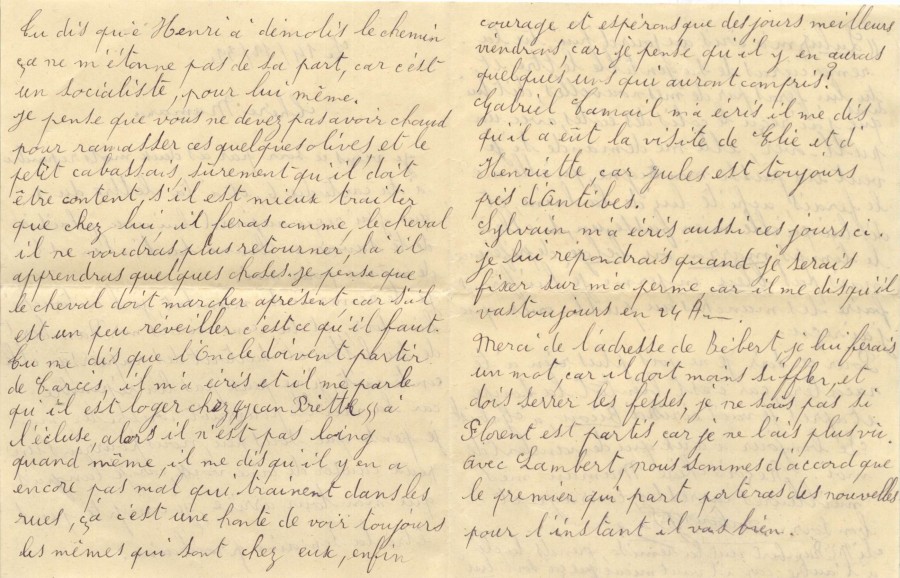 Tu dis qu'é Henri à démolis le chemin
ça ne m'étonne pas de sa part, car c'est
un socialiste, pour lui même.
je pense que vous ne devez pas avoir chaud
pour ramasser ces quelques olives, et le
petit cabassais, sûrement qu'il doit
être content, s'il est mieux traiter
que chez lui, il feras comme le cheval
il ne voudras plus retourner, là il
apprendras quelques choses. je pense que
le cheval doit marcher aprésent car s'il
est un peu réveiller c'est ce qu'il faut.
Tu me dis que l'Oncle doivent partir
de Carcès, il m'a écris et il me parle
qu'il est loger chez Jean à
l'écluse, alors il n'est pas loing
quand même, il me dis qu'il y en a
encore pas mal qui trainent dans les
rues, ça c'est une honte de voir toujours
les mêmes qui sont chez eux, enfin
courage et espérons que des jours meilleurs
viendrons car je pense qu'il y en auras
quelques uns qui auront compris!
Gabriel Camail m'a écris il me dis
qu'il à eût la visite de Elie et d'
Henriette, car Jules est toujours
près d'Antibes.
Sylvain m'a écris aussi ces jours ci.
je lui répondrais quand je serais
fixer sur m'a perme, car il me dis qu'il
vas toujours en 24 H.
Merci de l'adresse de Bébert, je lui ferais
un mot, car il doit moins siffler, et
dois serrer les fesses, je ne sais pas si
Florent est partis, car je ne l'ais plus vu.
Avec Lambert, nous sommes d'accord que
le premier qui part porteras des nouvelles
pour l'instant il vas bien.